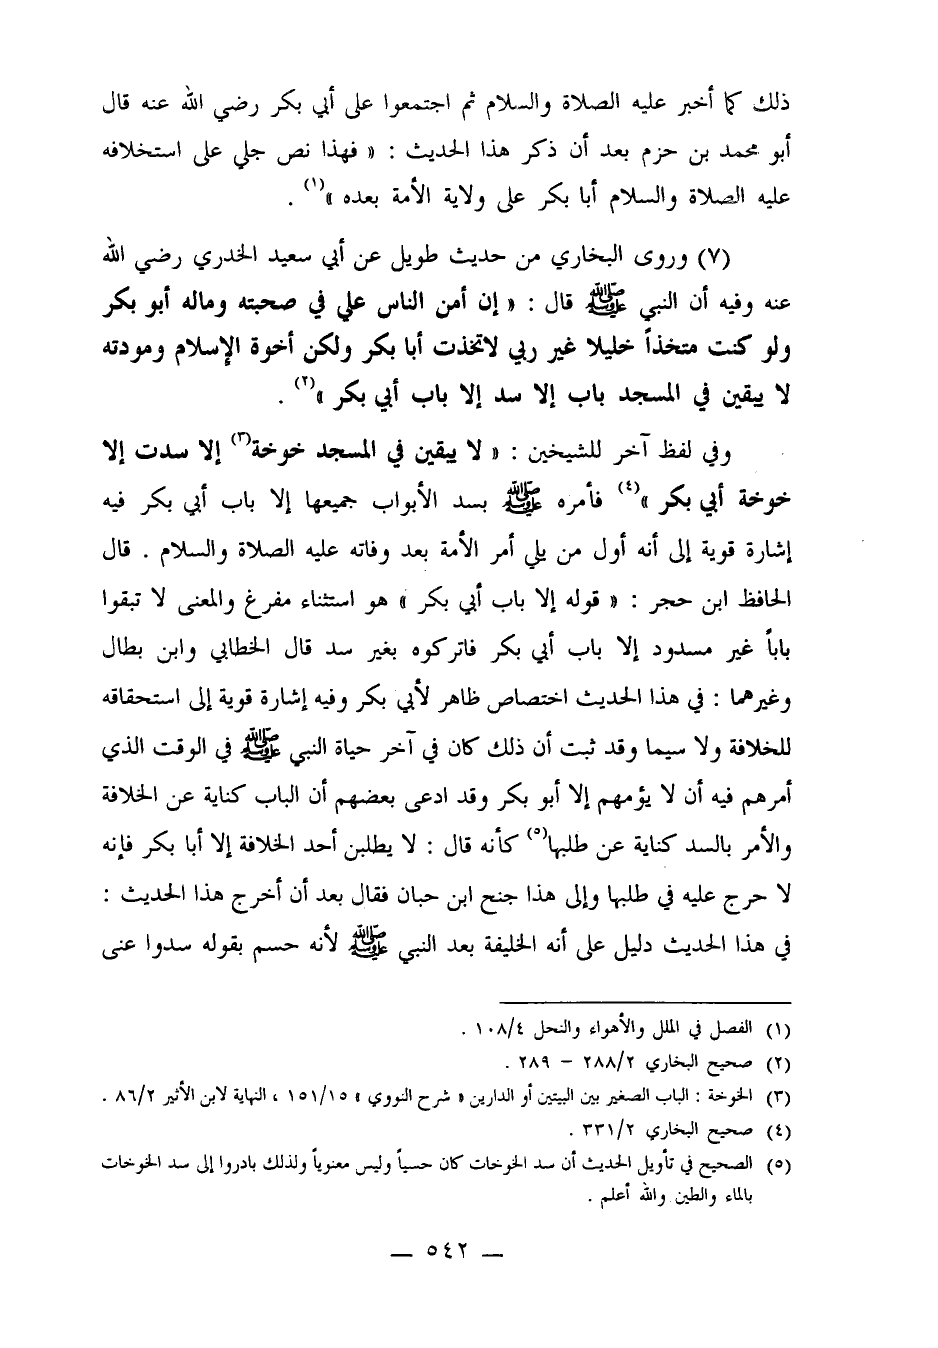 ذلك كما أخبر عليه الصلاة والسلام ثم اجتمعوا على أبي بكر رضي الله عنه قال
أبو محمد بن حزم بعد أن ذكر هذا الحديث : « فهذا نص جلي على استخلافه
عليه الصلاة والسلام أبا بكر على ولاية الأمة بعده »(١) .
(٧) وروى البخاري من حديث طويل عن أبي سعيد الخدري رضي الله
عنه وفيه أن النبي ﷺ قال : « إن أمن الناس علي في صحبته وماله أبو بكر
ولو كنت متخذاً خليلا غير ربي لاتخذت أبا بكر ولكن أخوة الإسلام ومودته
لا يبقين في المسجد باب إلا سد إلا باب أبي بكر »(٢) .
وفي لفظ آخر للشيخين : « لا يبقين في المسجد خوخة(٣) إلا سدت إلا
خوخة أبي بكر »(٤) فأمره ﷺ بسد الأبواب جميعها إلا باب أبي بكر فيه
إشارة قوية إلى أنه أول من يلي أمر الأمة بعد وفاته عليه الصلاة والسلام . قال
الحافظ ابن حجر : « قوله إلا باب أبي بكر » هو استثناء مفرغ والمعنى لا تبقوا
باباً غير مسدود إلا باب أبي بكر فاتركوه بغير سد قال الخطابي وابن بطال
وغيرهما : في هذا الحديث اختصاص ظاهر لأبي بكر وفيه إشارة قوية إلى استحقاقه
للخلافة ولا سيما وقد ثبت أن ذلك كان في آخر حياة النبي ﷺ في الوقت الذي
أمرهم فيه أن لا يؤمهم إلا أبو بكر وقد ادعى بعضهم أن الباب كناية عن الخلافة
والأمر بالسد كناية عن طلبها(٥) كأنه قال : لا يطلبن أحد الخلافة إلا أبا بكر فإنه
لا حرج عليه في طلبها وإلى هذا جنح ابن حبان فقال بعد أن أخرج هذا الحديث :
في هذا الحديث دليل على أنه الخليفة بعد النبي ﷺ لأنه حسم بقوله سدوا عنى
(١) الفصل في الملل والأهواء والنحل ١٠٨/٤ .
(٢) صحيح البخاري ٢٨٨/٢ – ٢٨٩ .
(٣) الخوخة : الباب الصغير بين البيتين أو الدارين « شرح النووي » ١٥١/١٥ ، النهاية لابن الأثير ٨٦/٢ .
(٤) صحيح البخاري ٣٣١/٢ .
(٥) الصحيح في تأويل الحديث أن سد الخوخات كان حسياً وليس معنوياً ولذلك بادروا إلى سد الخوخات
بالماء والطين والله أعلم .
— ٥٤٢ —